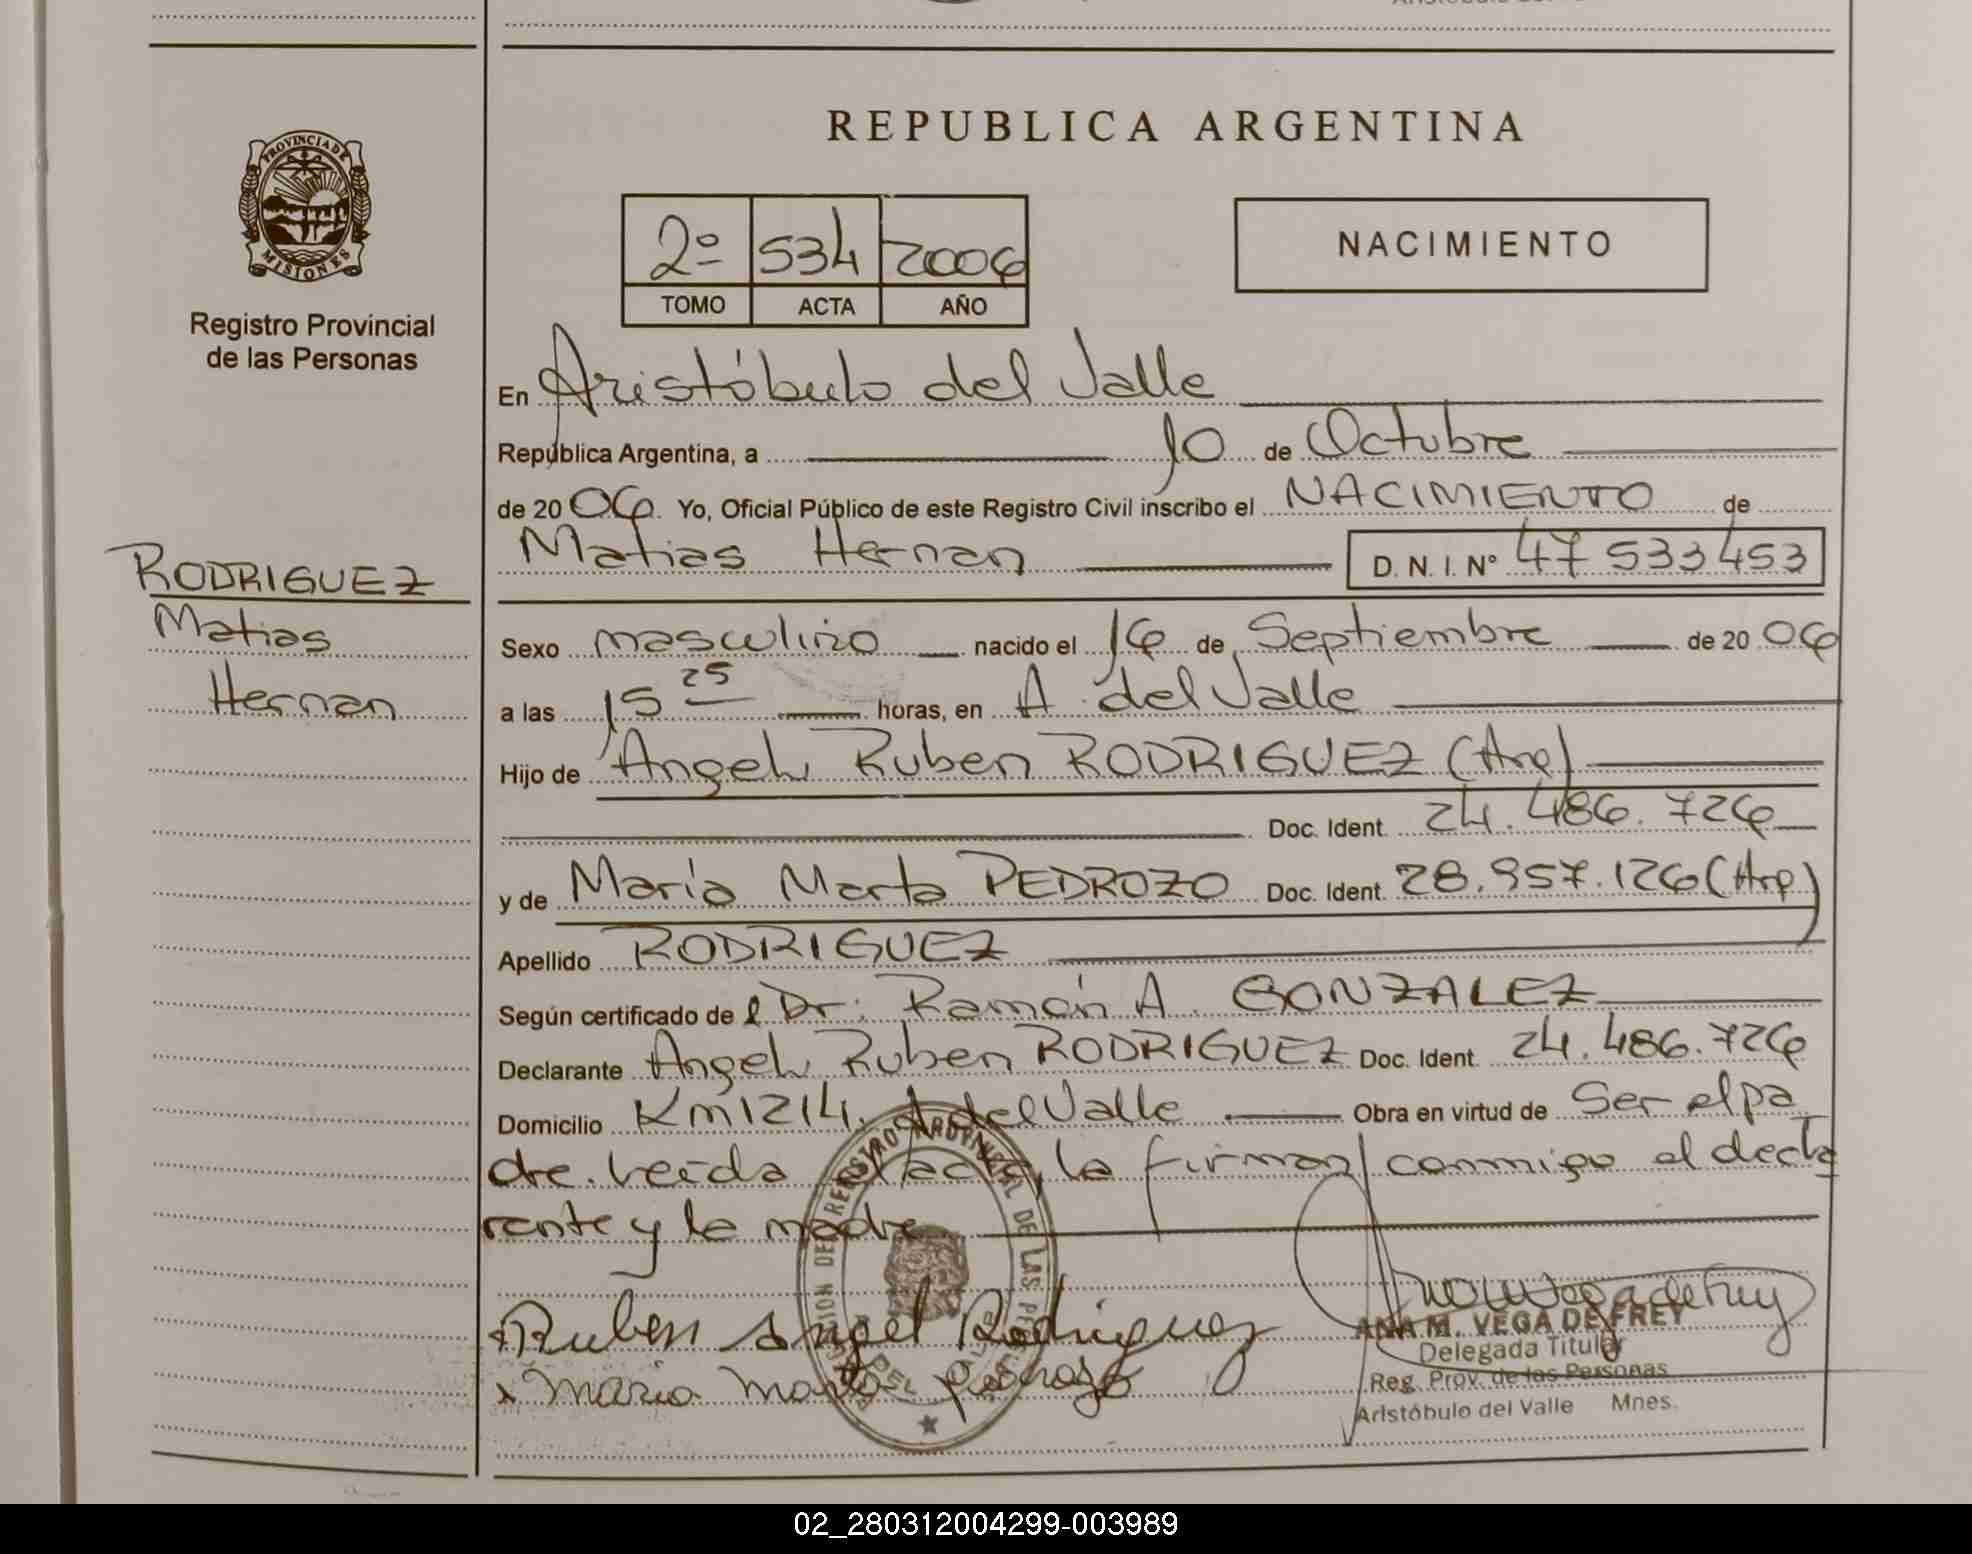 REPUBLICA ARGENTINA
PROVINCIA DE MISIONES
Registro Provincial
de las Personas
2º 534 2006
TOMO ACTA AÑO
NACIMIENTO
En Aristóbulo del Valle
República Argentina, a 10 de Octubre
de 2006. Yo, Oficial Público de este Registro Civil inscribo el NACIMIENTO de
Matias Hernan D. N. I. Nº 47 533 453
RODRIGUEZ
Matias
Hernan
Sexo masculino nacido el 16 de Septiembre de 2006
a las 15 25 horas, en A. del Valle
Hijo de Angel Ruben RODRIGUEZ (Arg)
Doc. Ident. 24.486.726
y de María Marta PEDROZO Doc. Ident. 28.957.126 (Arg)
Apellido RODRIGUEZ
Según certificado de l Dr. Ramón A. GONZALEZ
Declarante Angel Ruben RODRIGUEZ Doc. Ident. 24.486.726
Domicilio Km 1214. A del Valle Obra en virtud de Ser el pa
dre. Leída el acta, la firman conmigo el decla
rante y la madre
Ruben Angel Rodriguez
Maria Marta Pedrozo
ANA M. VEGA DE FREY
Delegada Titular
Reg. Prov. de las Personas
Aristóbulo del Valle Mnes.
02_280312004299-003989